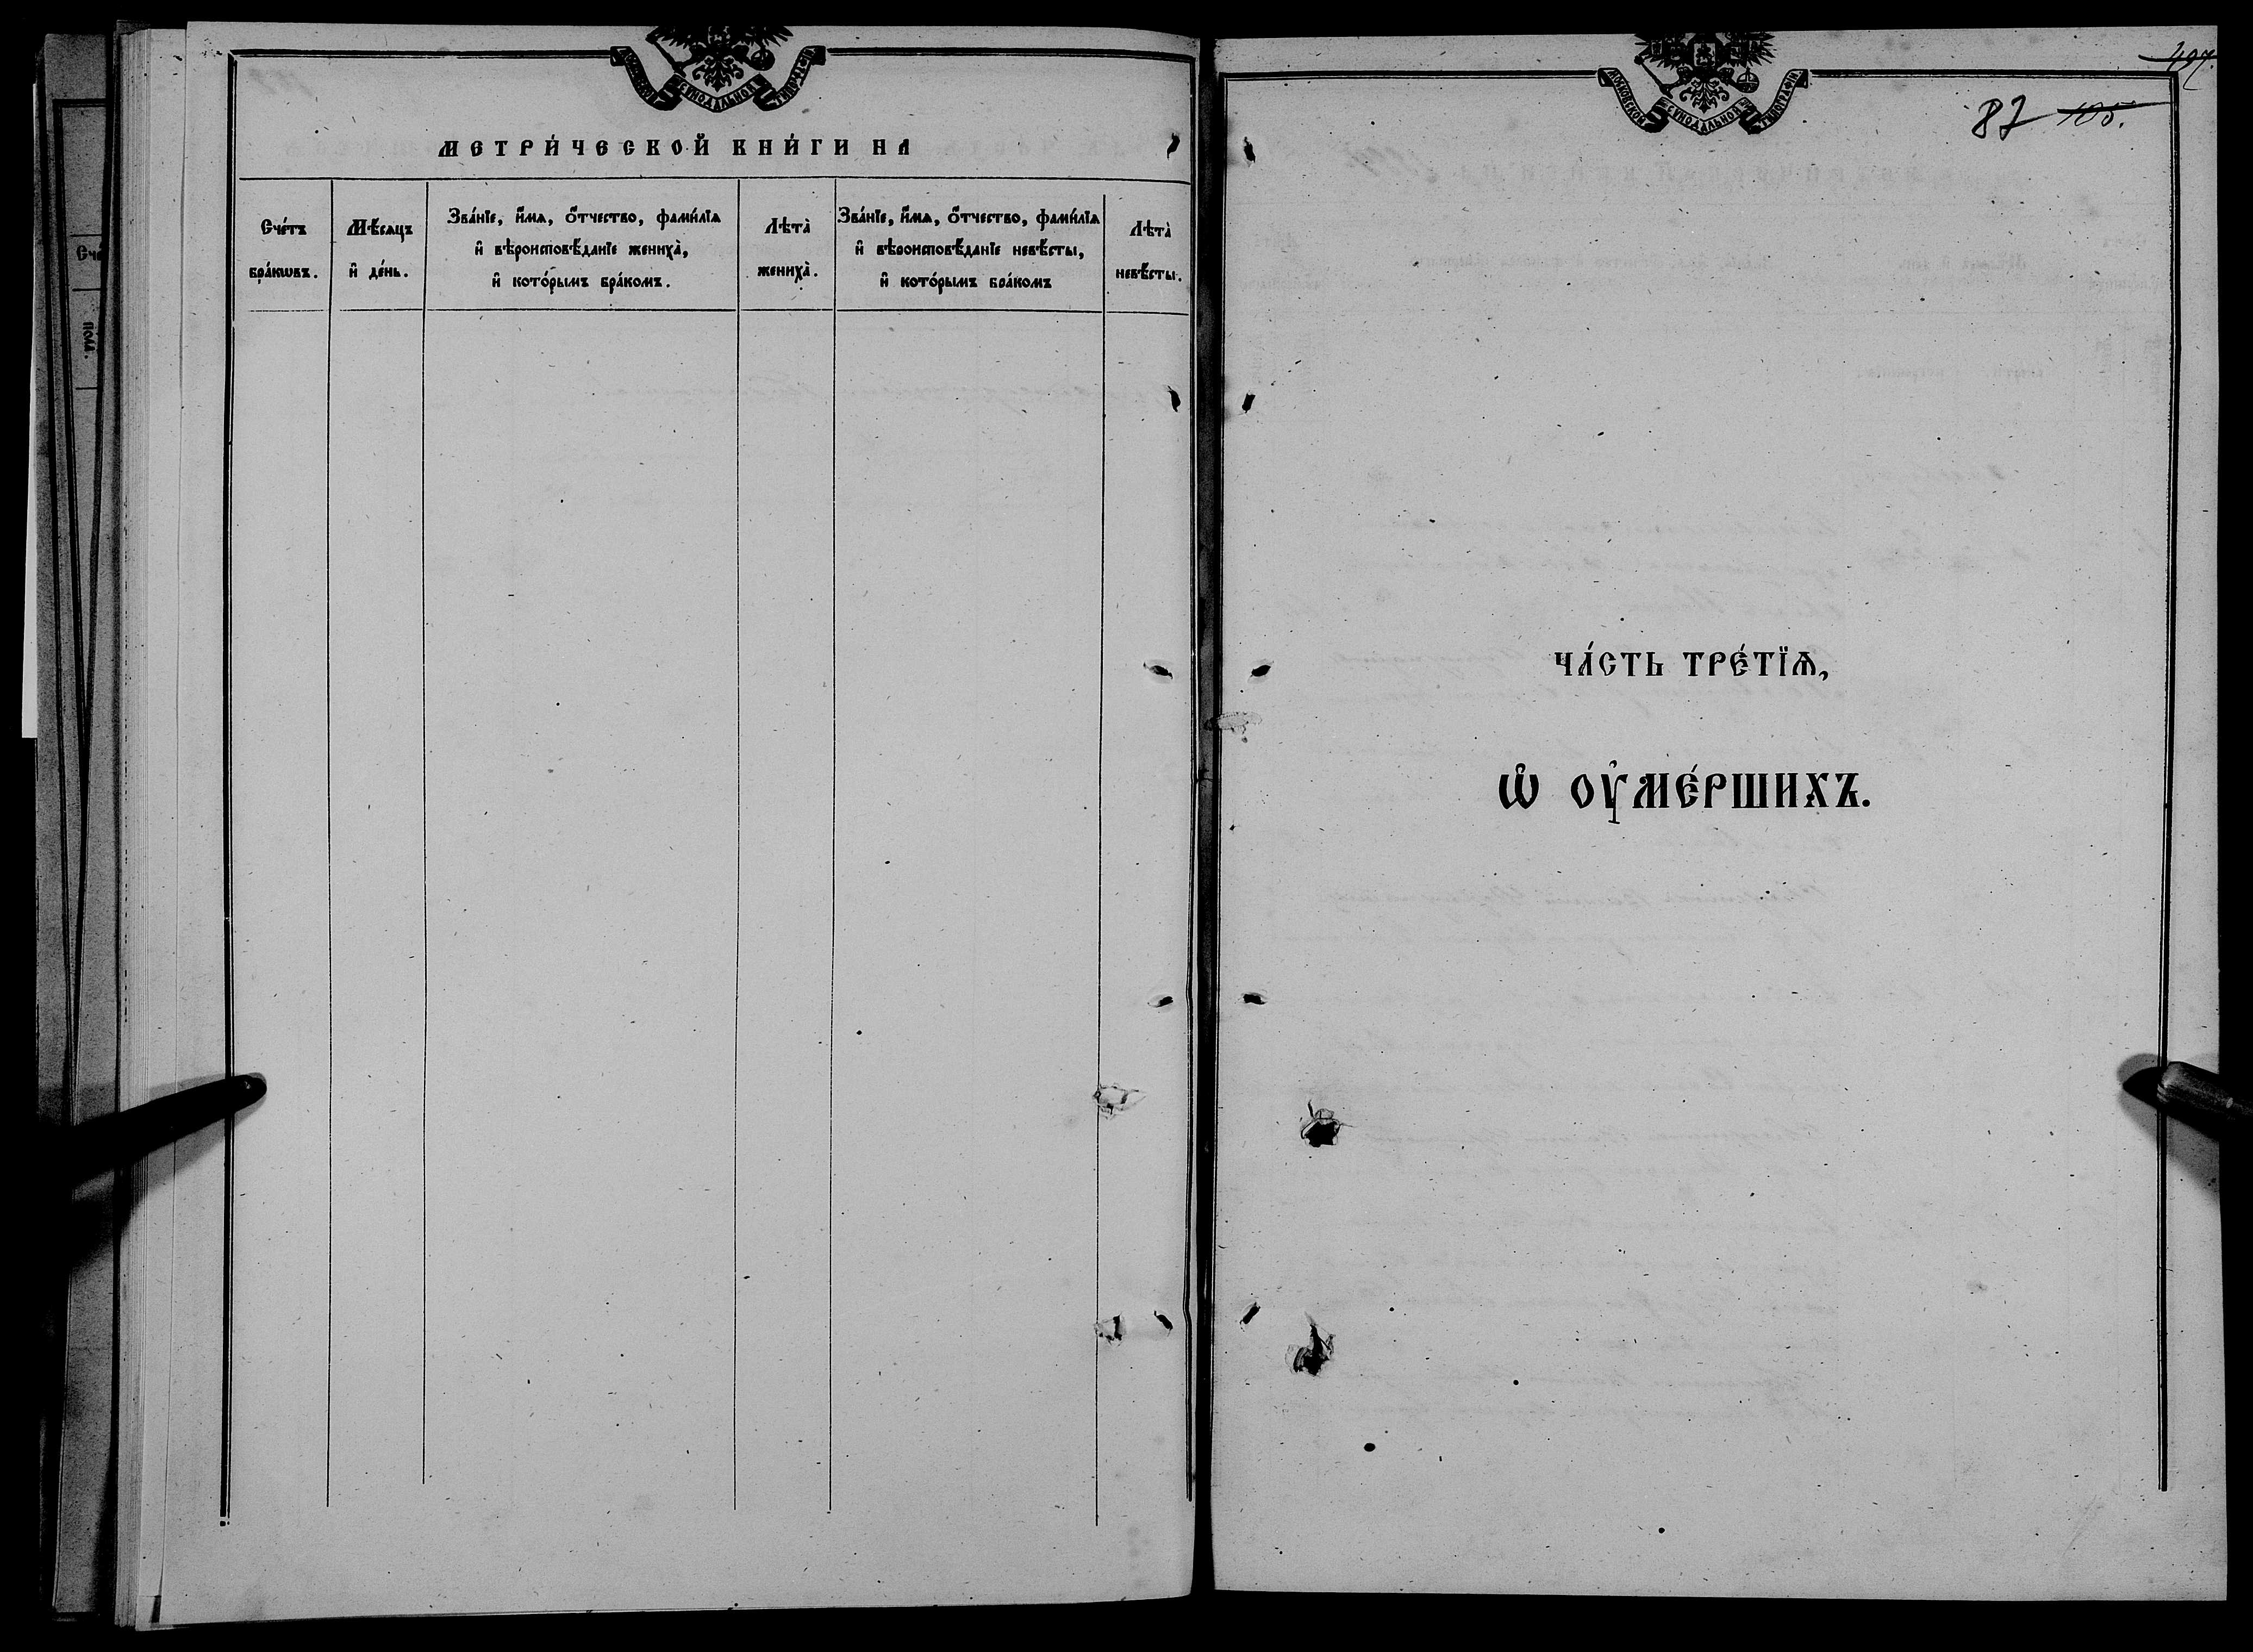 МОСКОВСКОЙ СѴНОДАЛЬНОЙ ТИПОГРАФІИ
МЕТРИ́ЧЕСКОЙ КНИ́ГИ НА
Сче́тъ
бра́кѡвъ.
Мѣ́сяцъ
и҆ де́нь.
Зва́нїе, и҆́мѧ, ѻ҆́тчество, фами́лїѧ
и҆ вѣроисповѣ́данїе жениха̀,
и҆ кото́рымъ бра́комъ.
Лѣта̀
жениха̀.
Зва́нїе, и҆́мѧ, ѻ҆́тчество, фами́лїѧ
и҆ вѣроисповѣ́данїе невѣ́сты,
и҆ кото́рымъ бра́комъ
Лѣта̀
невѣ́сты.
Сче́
пола.
МОСКОВСКОЙ СѴНОДАЛЬНОЙ ТИПОГРАФІИ
87 105.
ЧА́СТЬ ТРЕ́ТЇѦ,
Ѡ҆ ОУ҆МЕ́РШИХЪ.